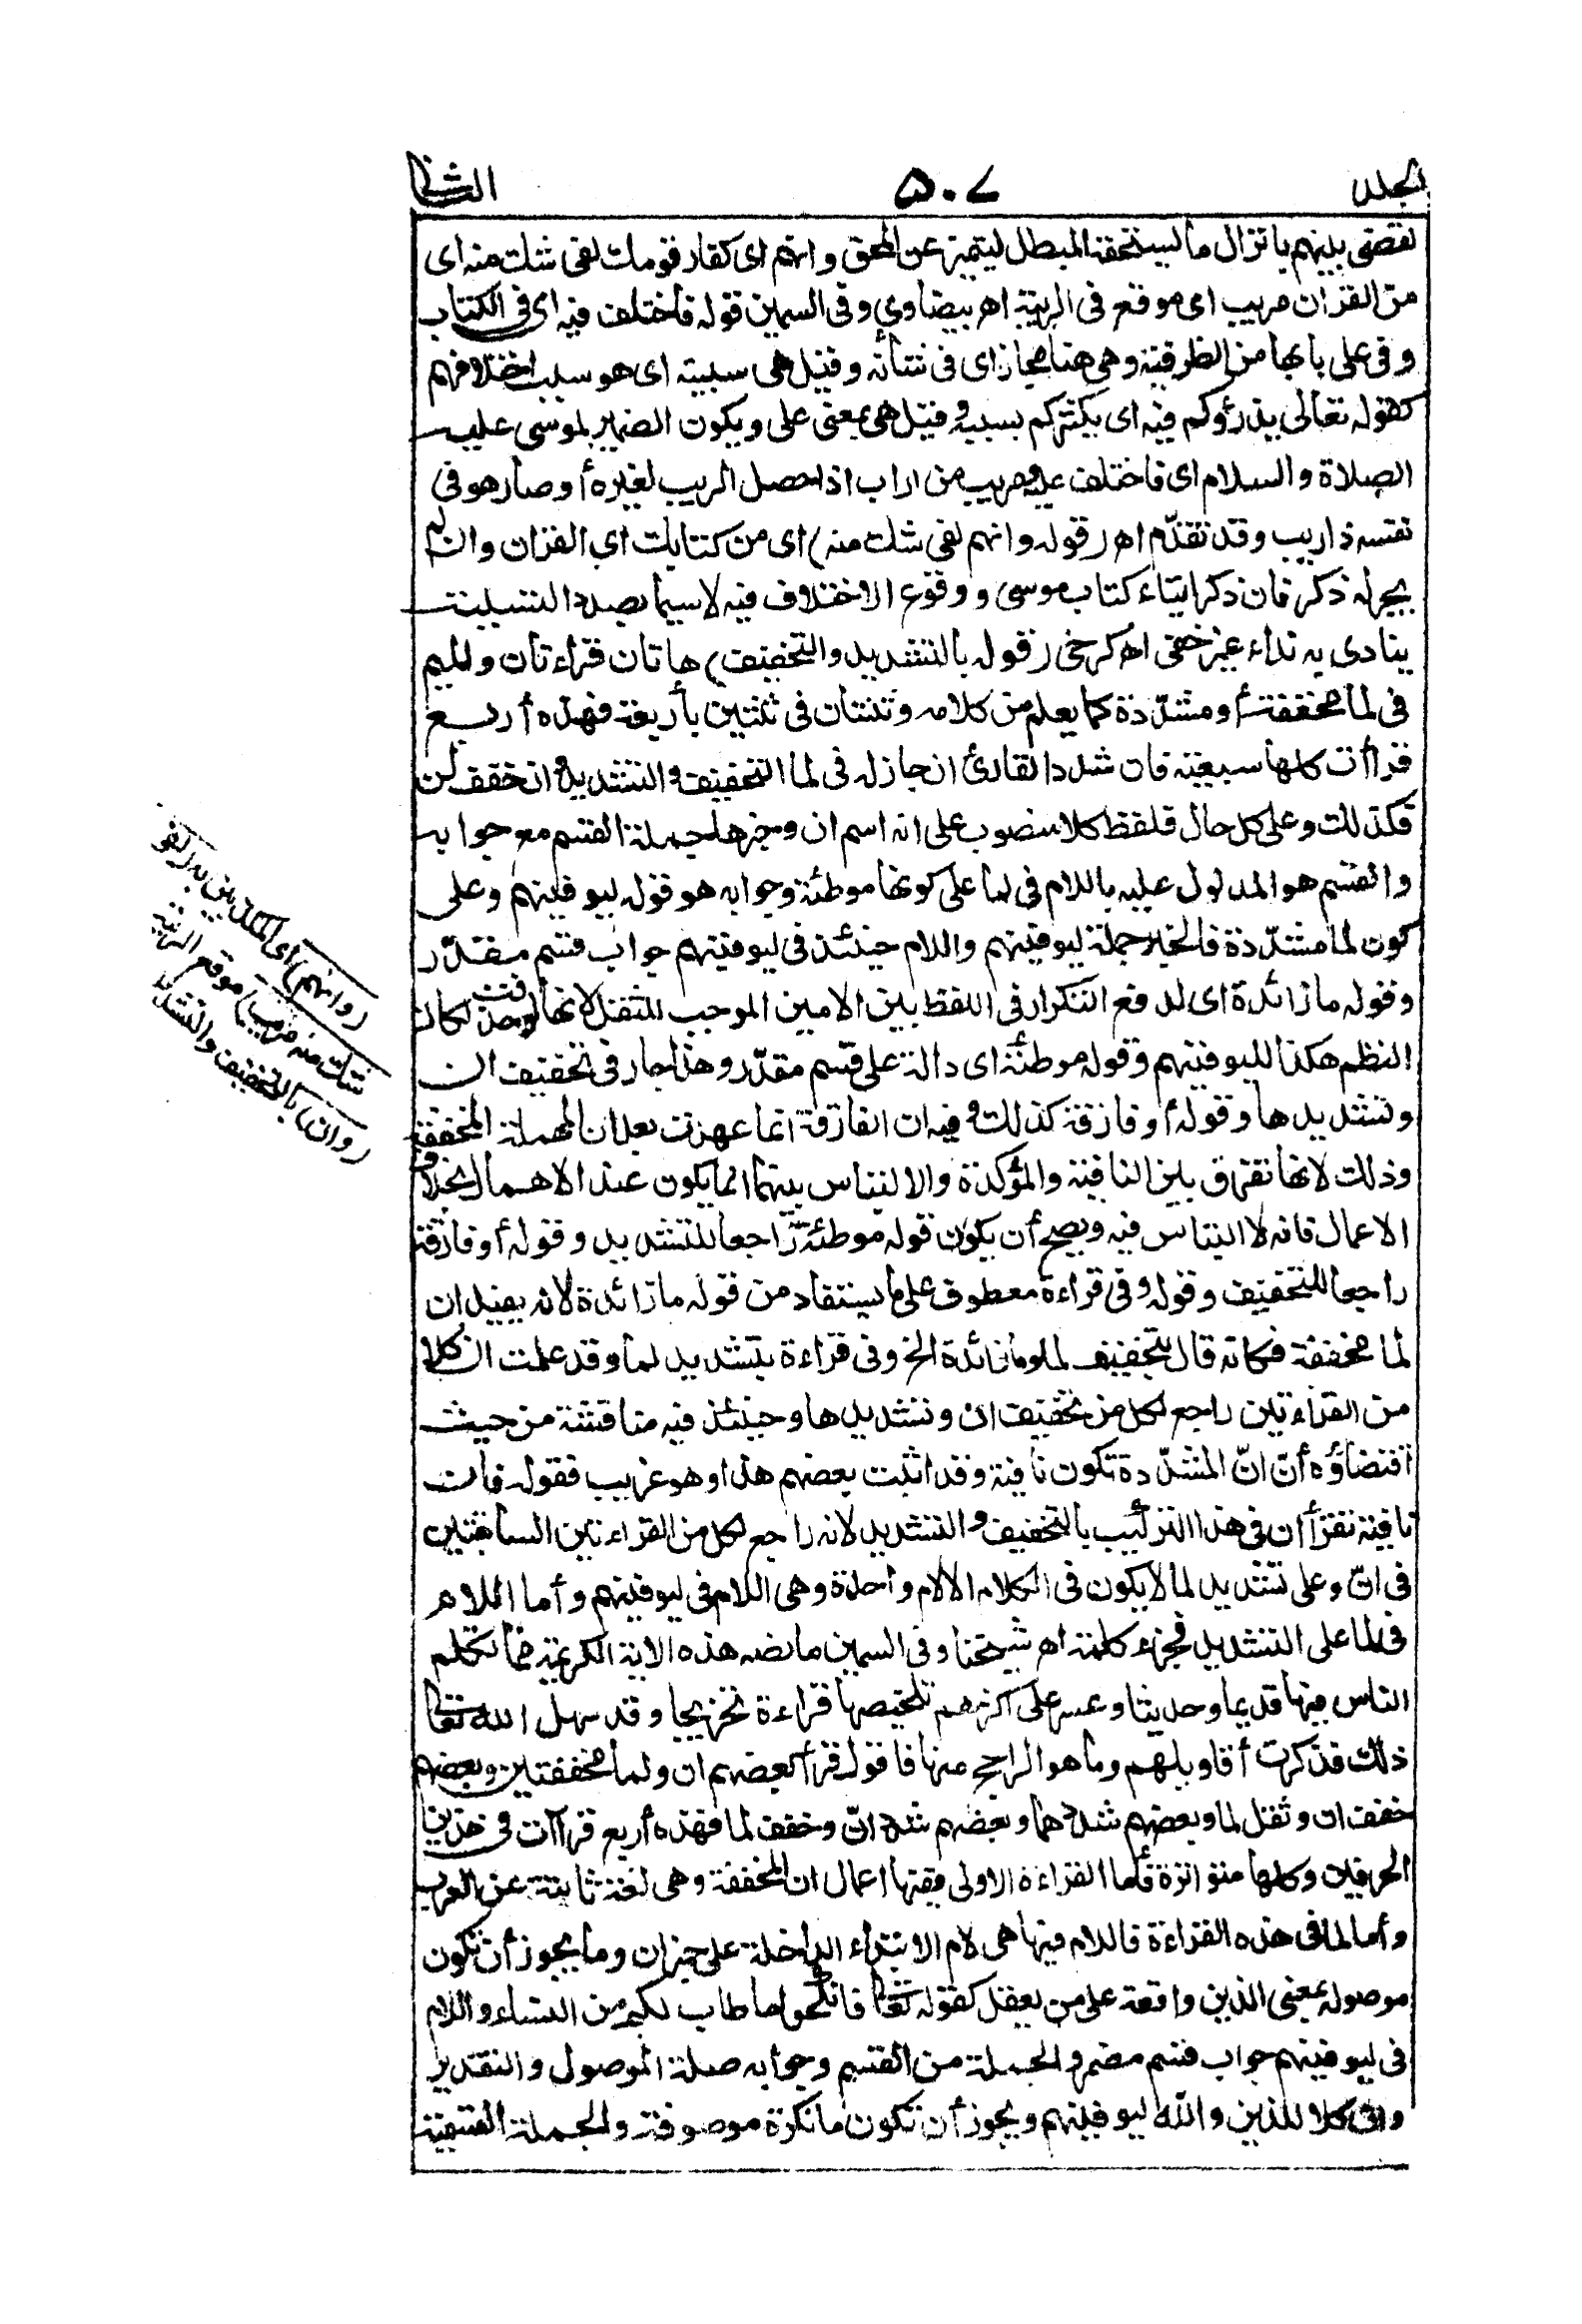 الجلد ٥٠٧ الثانى
لقضى بينهم بانزال ما يستحقه المبطل ليتميز عن المحق وانهم اى كفار قومك لفى شك منه اى
من القران مريب اى موقع فى الريبة اهر بيضاوى وفى السمين قوله فاختلف فيه اى فى الكتاب
وفى على بابها من الظرفية وهى هنا مجاز اى فى شأنه وقيل هى سببية اى هو سبب اختلافهم
كقوله تعالى يذرؤكم فيه اى يكثركم بسببه وقيل هى بمعنى على ويكون الضمير لموسى عليه
الصلاة والسلام اى فاختلف عليه ومريب من اراب اذا حصل الريب لغيره أو صار هو فى
نفسه ذا ريب وقد تقدّم اهر (قوله وانهم لفى شك منه) اى من كتابك اى القران وان لم
يجر له ذكر فان ذكر ايتاء كتاب موسى ووقوع الاختلاف فيه لا سيما بصدد التسلية
ينادى به نداء غير خفى اهر كرخى (قوله بالتشديد والتخفيف) هاتان قراءتان والميم
فى لما مخففة أو مشدّدة كما يعلم من كلامه وثنتان فى ثنتين بأربعة فهذه أربع
قراأت كلها سبعية فان شدد القارئ ان جاز له فى لما التخفيف والتشديد وان خفف لن
فكذلك وعلى كل حال فلفظ كلا منصوب على انه اسم ان وخبرها جملة القسم مع جوابه
والقسم هو المدلول عليه باللام فى لما على كونها موطئة وجوابه هو قوله ليوفينهم وعلى
كون لما مشدّدة فالخبر جملة ليوفينهم واللام حينئذ فى ليوفينهم جواب قسم مقدّر
وقوله ما زائدة اى لدفع التكرار فى اللفظ بين الامين الموجب للثقل لانها لو حذفت لكان
النظم هكذا لليوفينهم وقوله موطئة اى دالة على قسم مقدّر وهذا جار فى تخفيف ان
وتشديدها وقوله أو فارقة كذلك وفيه ان الفارقة انما عهدت بعد ان المهملة المخففة
وذلك لانها تفرق بين النافية والمؤكدة والالتباس بينهما انما يكون عند الاهمال بخلاف
الاعمال فانه لا التباس فيه ويصح أن يكون قوله موطئة راجعا للتشديد وقوله أو فارقة
راجعا للتخفيف وقوله وفى قراءة معطوف على ما يستفاد من قوله ما زائدة لانه يفيد ان
لما مخففة فكانه قال بتخفيف لما وما زائدة الخ وفى قراءة بتشديد لما وقد علمت ان كلا
من القراءتين راجع لكل من تخفيف ان وتشديدها وحينئذ فيه مناقشة من حيث
اقتضاؤه أن انّ المشدّدة تكون نافية وقد اثبت بعضهم هذا وهو غريب فقوله فان
نافية نقرأ ان فى هذا التركيب بالتخفيف والتشديد لانه راجع لكل من القراءتين السابقتين
فى انّ وعلى تشديد لما لا يكون فى الكلام الا لام واحدة وهى اللام فى ليوفينهم وأما اللام
فى لما على التشديد فجزء كلمة اهر شيخنا وفى السمين ما نصه هذه الاية الكريمة مما تكلم
الناس فيها قديما وحديثا وعسر على اكثرهم تلخيصها قراءة تخريجا وقد سهل الله تعالى
ذلك فذكرت أقاويلهم وما هو الراجح منها فاقول قرأ بعضهم ان ولما مخففتين وبعضهم
خفف ان وثقل لما وبعضهم شددهما وبعضهم شدد انّ وخفف لما فهذه أربع قراآت فى هذين
الحرفين وكلها متواترة فأما القراءة الاولى ففيها اعمال ان المخففة وهى لغة ثابتة عن العرب
وأما لما فى هذه القراءة فاللام فيها هى لام الابتداء الداخلة على خبر ان وما يجوز أن تكون
موصولة بمعنى الذين واقعة على من يعقل كقوله تعالى فانكحوا ما طاب لكم من النساء واللام
فى ليوفينهم جواب قسم مضمر والجملة من القسم وجوابه صلة الموصول والتقدير
وان كلا للذين والله ليوفينهم ويجوز أن تكون ما نكرة موصوفة والجملة القسمية
(وانهم) اى المكذبين به لفى
شك منه مريب) موقع الريبة
(وان) بالتخفيف والتشديد